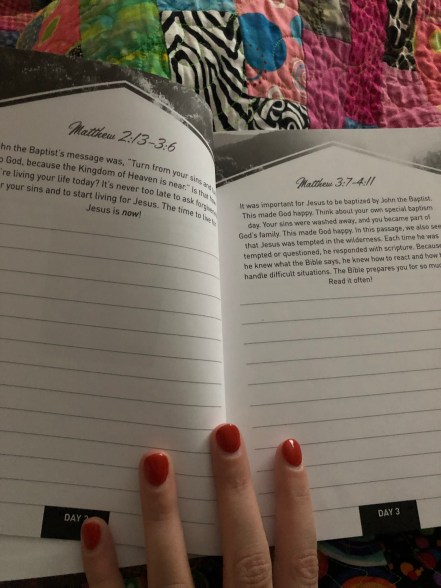 Matthew 2:13-3:6
hn the Baptist's message was, "Turn from your sins and
God, because the Kingdom of Heaven is near." Is that how
're living your life today? It's never too late to ask forgiveness
your sins and to start living for Jesus. The time to live for
Jesus is now!
DAY
Matthew 3:7-4:11
It was important for Jesus to be baptized by John the Baptist.
This made God happy. Think about your own special baptism
day. Your sins were washed away, and you became part of
God's family. This made God happy. In this passage, we also see
that Jesus was tempted in the wilderness. Each time he was
tempted or questioned, he responded with scripture. Because
he knew what the Bible says, he knew how to react and how
handle difficult situations. The Bible prepares you for so muc
Read it often!
DAY 3